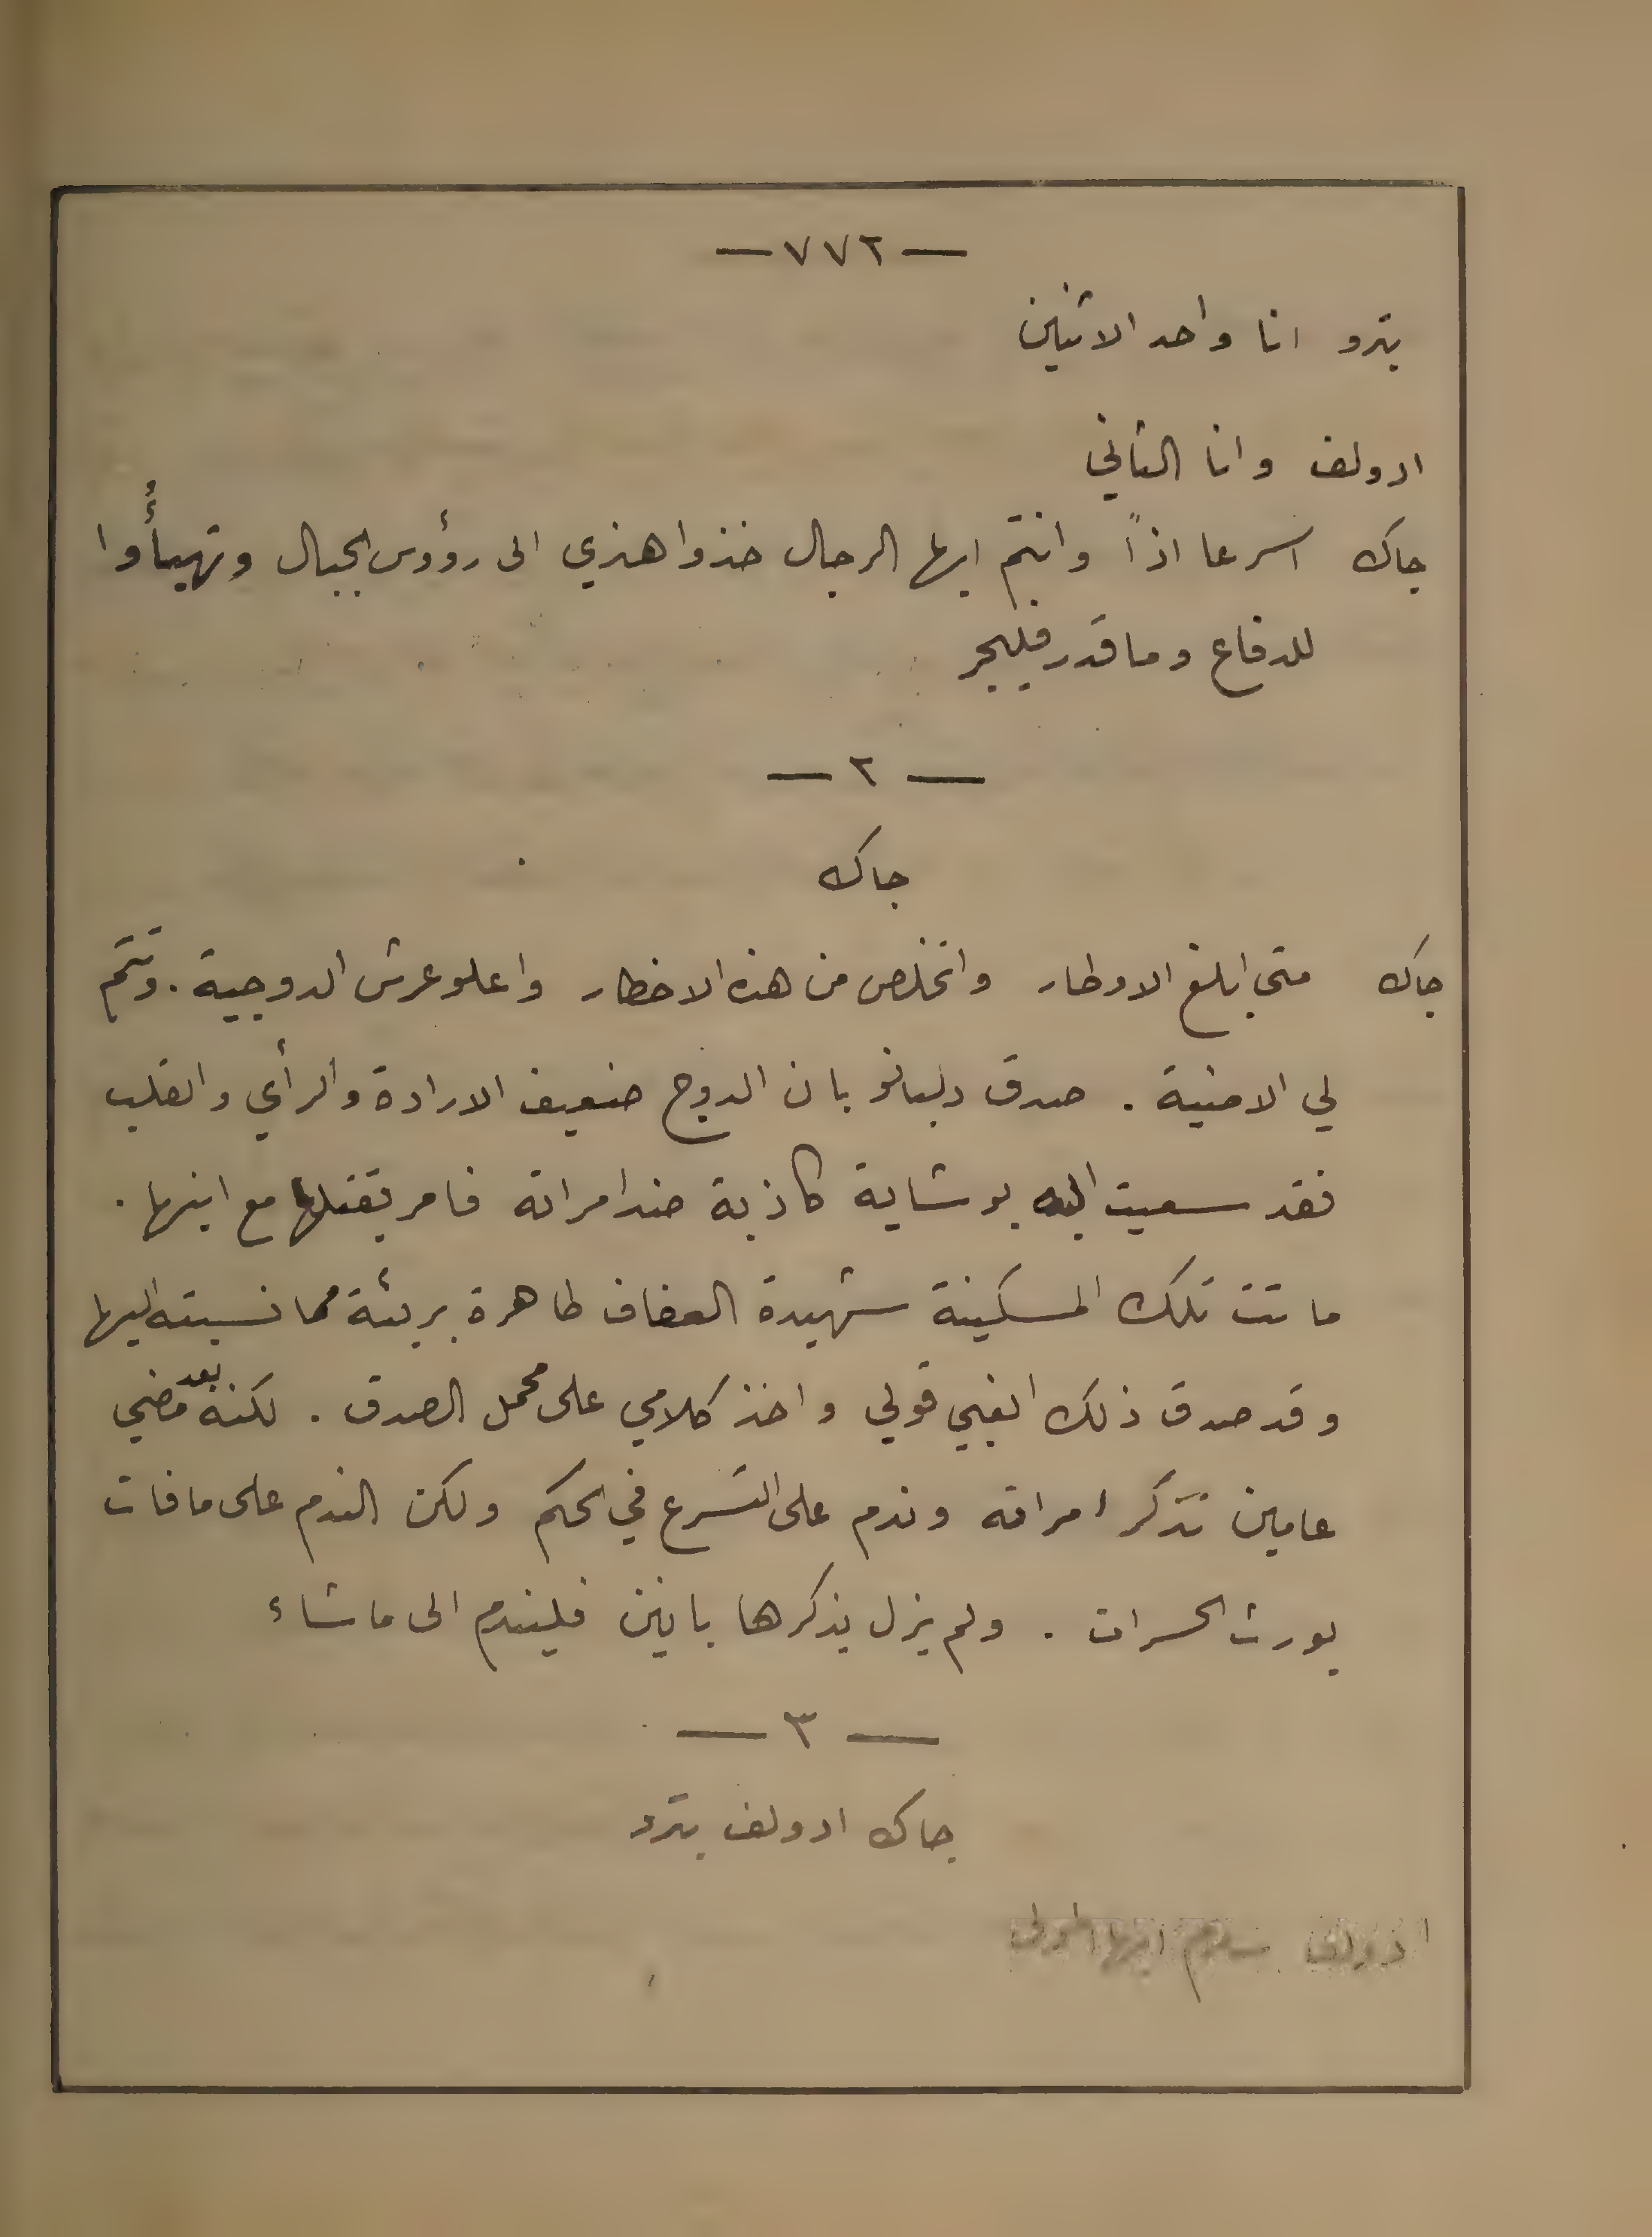 — ٧٧٢ —
بترو انا واحد الاثنين
ادولف وانا الثاني
جاك اسرعا اذاً وانتم ايها الرجال خذوا هذي الى رؤوس الجبال وتهيأُوا
للدفاع وما قدر فليجر
— ٢ —
جاك
جاك متى ابلغ الاوطار واتخلص من هذه الاخطار واعلو عرش الدوجية . وتتم
لي الامنية . صدق دلبانو بان الدوج ضعيف الارادة والرأي والقلب
فقد سعيت اليه بوشاية كاذبة ضد امراته فامر بقتلها مع ابنها .
ماتت تلك المسكينة شهيدة العفاف طاهرة بريئة مما نسبته اليها
وقد صدق ذلك الغبي قولي واخذ كلامي على محمل الصدق . لكنه بعد مضي
عامين تذكر امراته وندم على التسرع في الحكم ولكن الندم على ما فات
يورث الحسرات . ولم يزل يذكرها بانين فليندم الى ما شاء
— ٣ —
جاك ادولف بترو
ادولف سلام ايها المولى